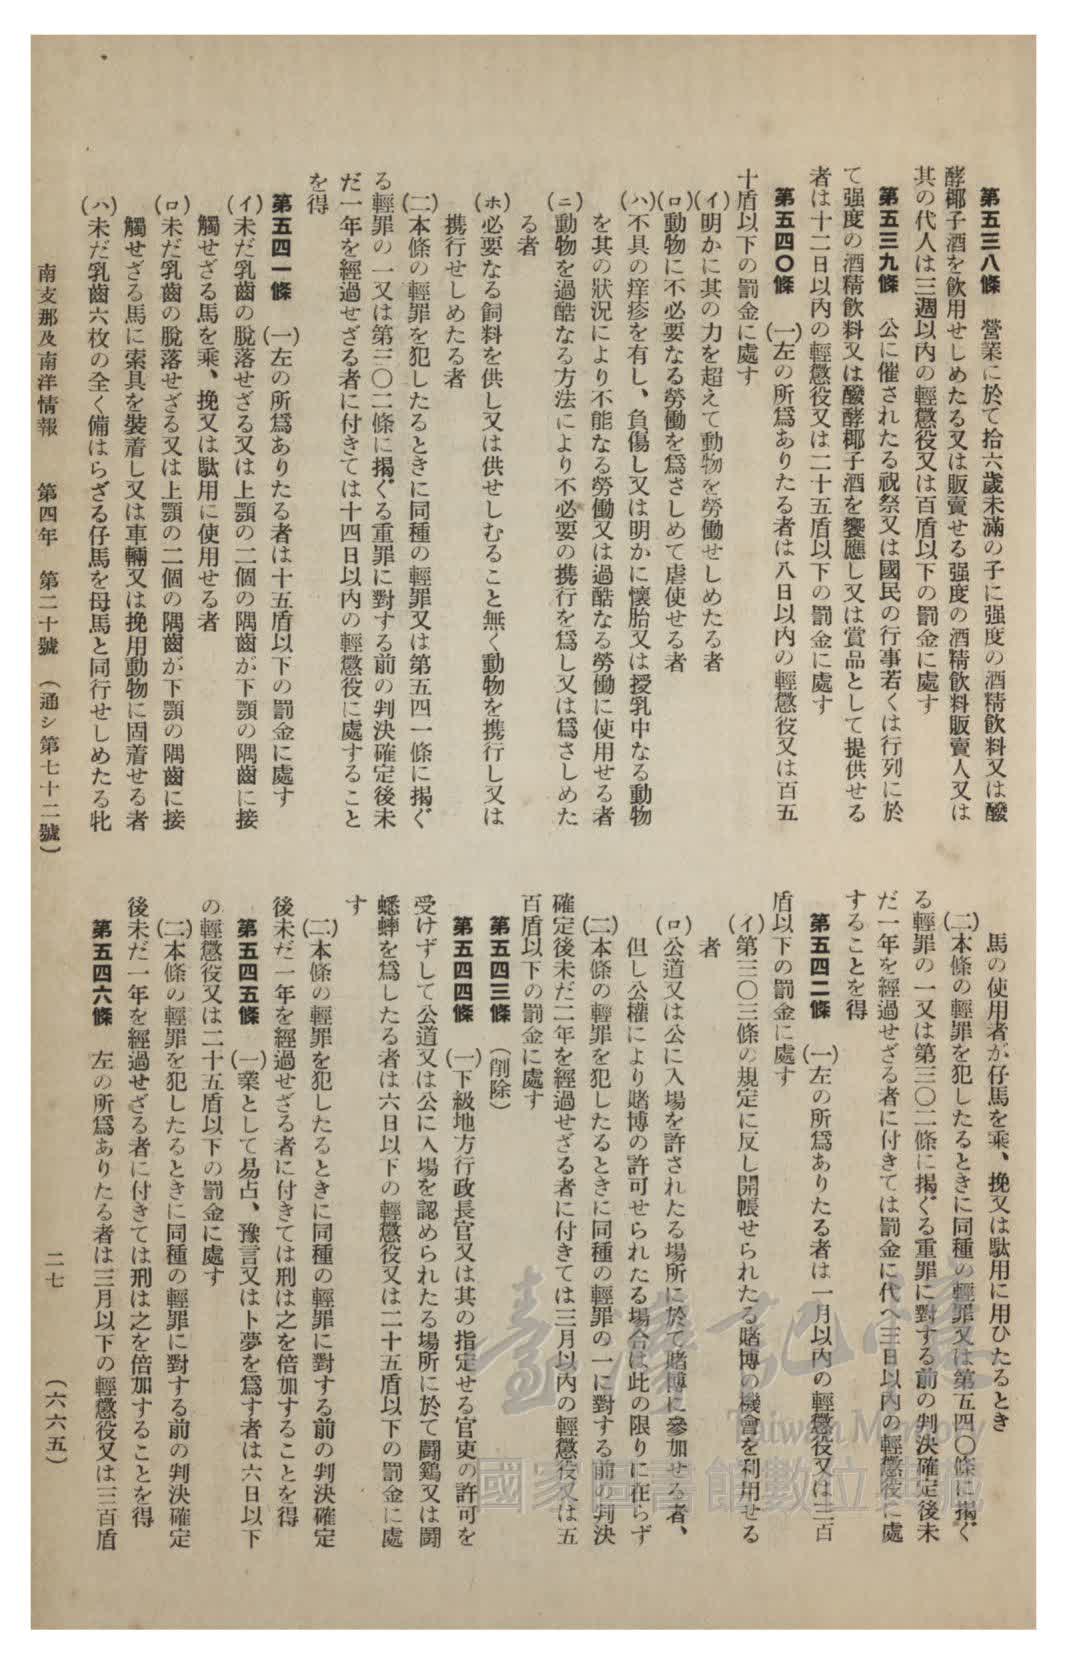 第五三八條　營業に於て拾六歲未滿の子に强度の酒精飮料又は醱
酵椰子酒を飮用せしめたる又は販賣せる强度の酒精飮料販賣人又は
其の代人は三週以內の輕懲役又は百盾以下の罰金に處す
第五三九條　公に催されたる祝祭又は國民の行事若くは行列に於
て强度の酒精飮料又は醱酵椰子酒を饗應し又は賞品として提供せる
者は十二日以內の輕懲役又は二十五盾以下の罰金に處す
第五四〇條　(一)左の所爲ありたる者は八日以內の輕懲役又は百五
十盾以下の罰金に處す
(イ)明かに其の力を超えて動物を勞働せしめたる者
(ロ)動物に不必要なる勞働を爲さしめて虐使せる者
(ハ)不具の痒疹を有し、負傷し又は明かに懷胎又は授乳中なる動物
を其の狀況により不能なる勞働又は過酷なる勞働に使用せる者
(ニ)動物を過酷なる方法により不必要の携行を爲し又は爲さしめた
る者
(ホ)必要なる飼料を供し又は供せしむること無く動物を携行し又は
携行せしめたる者
(二)本條の輕罪を犯したるときに同種の輕罪又は第五四一條に揭ぐ
る輕罪の一又は第三〇二條に揭ぐる重罪に對する前の判決確定後未
だ一年を經過せざる者に付きては十四日以內の輕懲役に處すること
を得
第五四一條　(一)左の所爲ありたる者は十五盾以下の罰金に處す
(イ)未だ乳齒の脫落せざる又は上顎の二個の隅齒が下顎の隅齒に接
觸せざる馬を乘、挽又は駄用に使用せる者
(ロ)未だ乳齒の脫落せざる又は上顎の二個の隅齒が下顎の隅齒に接
觸せざる馬に索具を裝着し又は車輛又は挽用動物に固着せる者
(ハ)未だ乳齒六枚の全く備はらざる仔馬を母馬と同行せしめたる牝
馬の使用者が仔馬を乘、挽又は駄用に用ひたるとき
(二)本條の輕罪を犯したるときに同種の輕罪又は第五四〇條に揭ぐ
る輕罪の一又は第三〇二條に揭ぐる重罪に對する前の判決確定後未
だ一年を經過せざる者に付きては罰金に代へ三日以內の輕懲役に處
することを得
第五四二條　(一)左の所爲ありたる者は一月以內の輕懲役又は三百
盾以下の罰金に處す
(イ)第三〇三條の規定に反し開帳せられたる賭博の機會を利用せる
者
(ロ)公道又は公に入場を許されたる場所に於て賭博に參加せる者、
但し公權により賭博の許可せられたる場合は此の限りに在らず
(二)本條の輕罪を犯したるときに同種の輕罪の一に對する前の判決
確定後未だ二年を經過せざる者に付きては三月以內の輕懲役又は五
百盾以下の罰金に處す
第五四三條　(削除)
第五四四條　(一)下級地方行政長官又は其の指定せる官吏の許可を
受けずして公道又は公に入場を認められたる場所に於て鬪鷄又は鬪
蟋蟀を爲したる者は六日以下の輕懲役又は二十五盾以下の罰金に處
す
(二)本條の輕罪を犯したるときに同種の輕罪に對する前の判決確定
後未だ一年を經過せざる者に付きては刑は之を倍加することを得
第五四五條　(一)業として易占、豫言又は卜夢を爲す者は六日以下
の輕懲役又は二十五盾以下の罰金に處す
(二)本條の輕罪を犯したるときに同種の輕罪に對する前の判決確定
後未だ一年を經過せざる者に付きては刑は之を倍加することを得
第五四六條　左の所爲ありたる者は三月以下の輕懲役又は三百盾
南支那及南洋情報　第四年　第二十號　(通シ第七十二號)　二七　(六六五)
臺灣記憶
Taiwan Memory
國家圖書館數位典藏